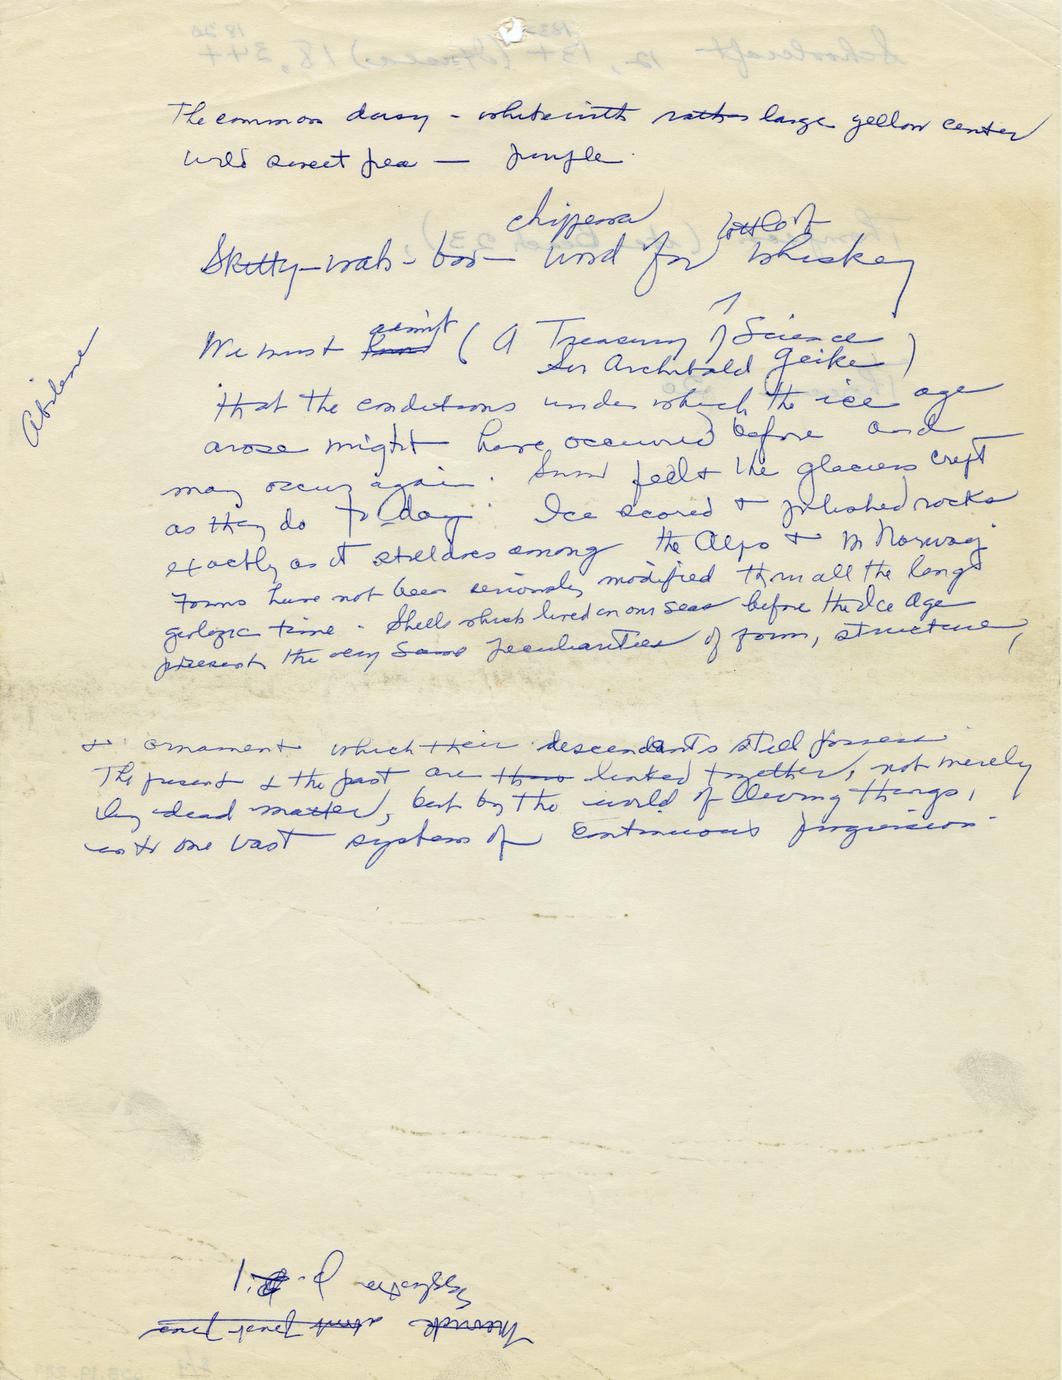 The common daisy - white with rather large yellow center
wild sweet pea — purple
chippewa
Skitty-wab-boo- word for whiskey
We must admit ( A Treasury of Science
Sir Archibald Geikie )
Abilene
that the conditions under which the ice age
arose might have occurred before and
may occur again. the glaciers crept
as they do to-day. Ice scored + polished rocks
exactly as it still does among the Alps + in Norway
Forms have not been seriously modified thru all the long
geologic time. Shells which lived in our seas before the Ice Age
present the very same peculiarities of form, structure,
+ ornament which their descendants still possess
The present + the past are thus linked together, not merely
by dead matter, but by the world of living things,
into one vast system of continuous progression.
p. 1
Merrick